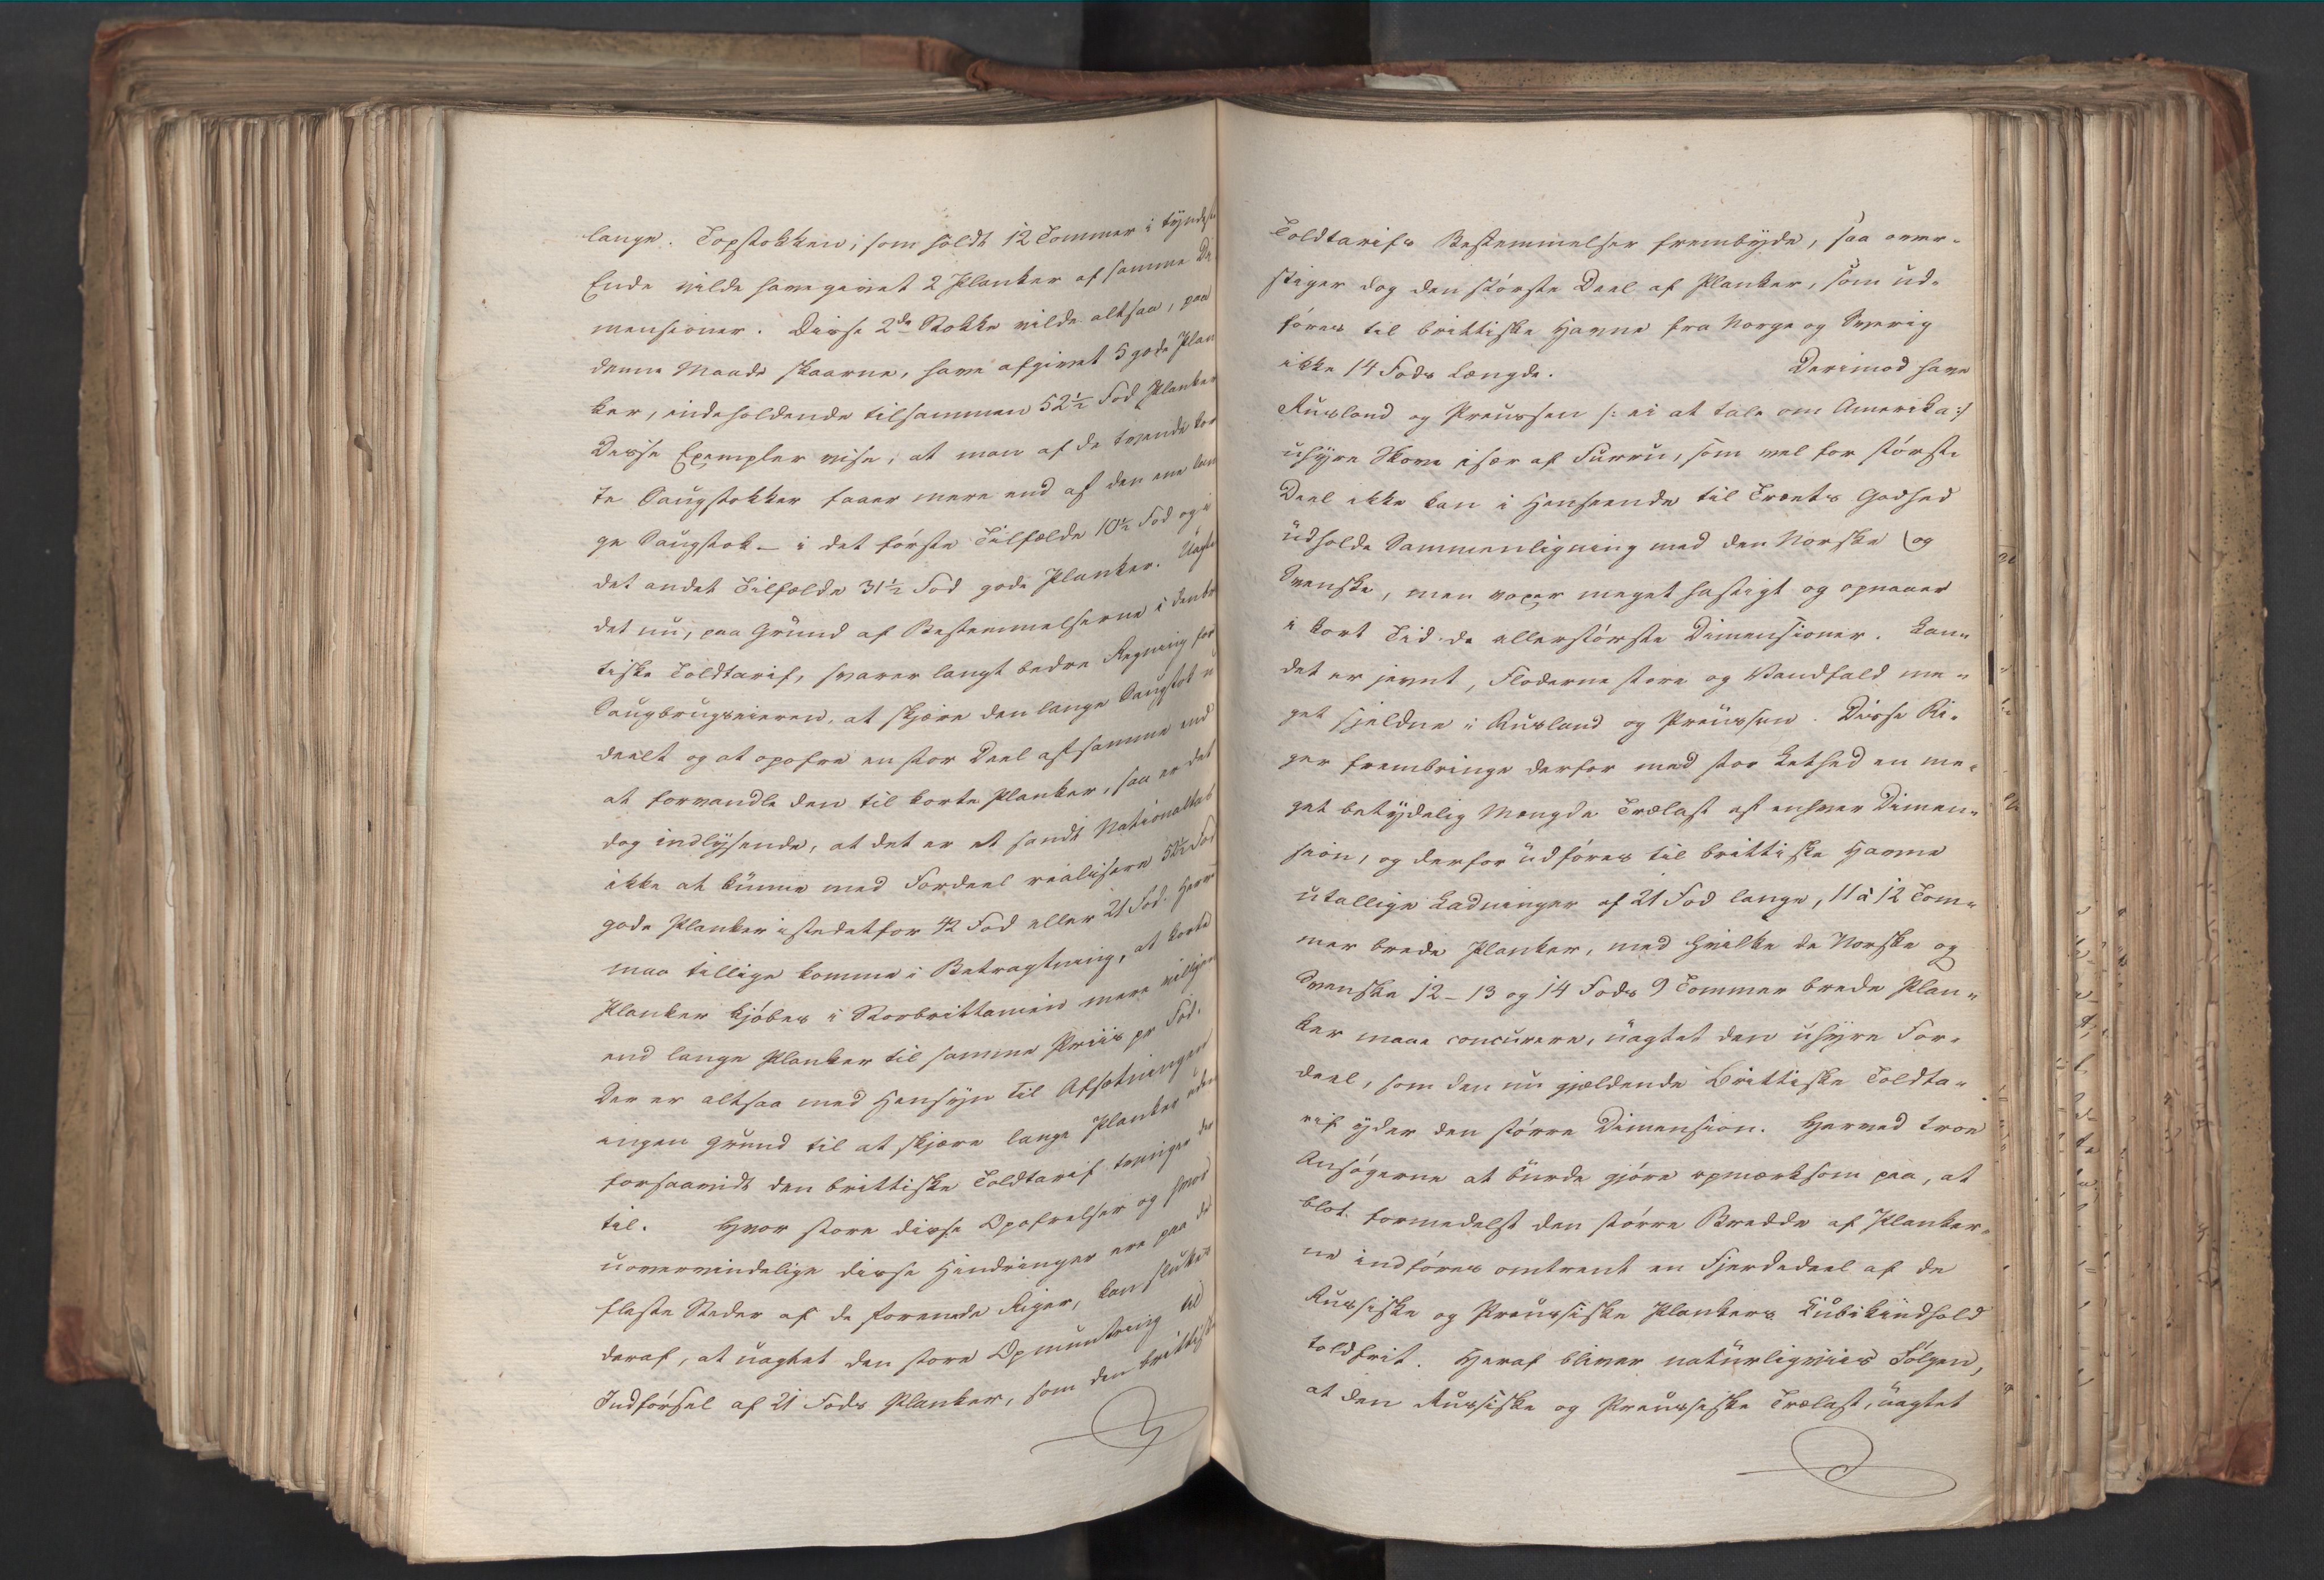 lange. Topstokken, som holdt 12 Tommer i tyndeste
Ende vilde have givet 2 Planker af samme Di
mensioner. Disse 2de Stokke vilde altsaa, paa
denne Maade skaarne, have afgivet 5 gode Plan
ker, indeholdende tilsammen 52½ Fod Planker
Disse Exempler vise, at man af de tvende kor
te Saugstokker faaer mere end af den ene lan
ge Saugstok – i det første Tilfælde 10½ Fod og i
det andet Tilfælde 31½ Fod gode Planker. Uagte
det nu, paa Grund af Bestemmelserne i den brit
tiske Toldtarif, svarer langt bedre Regning for
Saugbrugseieren, at skjære den lange Saugstok u
deelt og at opofre en stor Deel af samme end
at forvandle den til korte Planker, saa er det
dog indlysende, at det er et sandt Nationaltab
ikke at kunne med Fordeel realisere 52½ Fod
gode Planker istedetfor 42 Fod eller 21 Fod. Herved
maa tillige komme i Betragtning, at korte
Planker kjøbes i Storbrittanien mere villigen
end lange Planker til samme Priis pr Fod.
Der er altsaa med Hensyn til Afsætningen
ingen Grund til at skjære lange Planker uden
forsaavidt den brittiske Toldtarif tvinger der
til. Hvor store disse Opofrelser og hvor
uovervindelige disse Hindringer ere paa de
fleste Steder af de forenede Riger, kan sluttes
deraf, at uagtet den store Opmuntring til
Indførsel af 21 Fods Planker, som den brittiske
Toldtarifs Bestemmelser frembyde, saa over-
stiger dog den største Deel af Planker, som ud-
føres til brittiske Havne fra Norge og Sverig
ikke 14 Fods Længde. Derimod have
Rusland og Preussen /: ei at tale om Amerika :/
uhyre Skove især af Furru, som vel for største
Deel ikke kan i Henseende til Træets Godhed
udholde Sammenligning med den Norske (og
Svenske, men voxer meget hastigt og opnaaer
i kort Tid de allerstørste Dimensioner. Lan-
det er jevnt, Floderne store og Vandfald me-
get sjeldne i Rusland og Preussen. Disse Ri-
ger frembringe derfor med stor Lethed en me-
get betydelig Mengde Trælast af enhver Dimen-
sion, og derfor udføres til brittiske Havne
utallige Ladninger af 21 Fod lange, 11 à 12 Tom-
mer brede Planker, med hvilke de Norske og
Svenske 12 – 13 og 14 Fods 9 Tommer brede Plan-
ker maae concurere, uagtet den uhyre For-
deel, som den nu gjældende Brittiske Toldta-
rif yder den større Dimension. Herved troe
Ansøgerne at burde gjøre opmærksom paa, at
blot formedelst den større Bredde af Planker-
ne indføres omtrent en Fjerdedeel af de
Russiske og Preussiske Plankers Kubikindhold
toldfrit. Heraf bliver naturligviis Følgen,
at den Russiske og Preussiske Trælast, uagtet